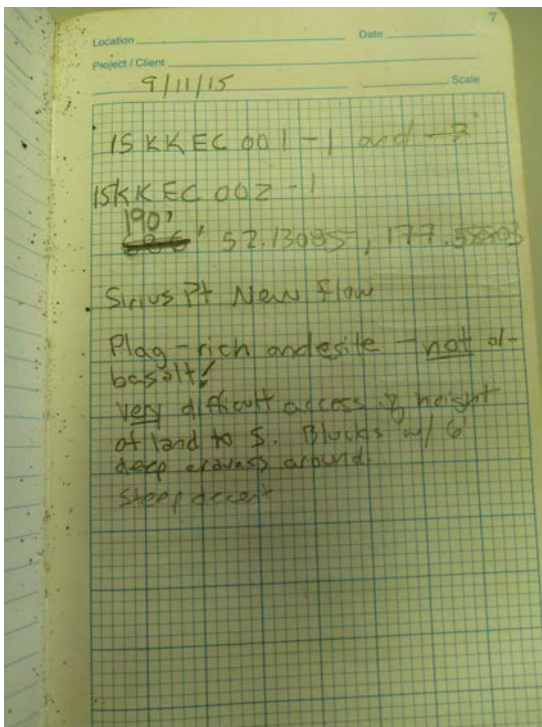 7
Location Date
Project / Client
9/11/15 Scale
15 KK EC 001 - 1 and
15KK EC 002 - 1
190'
' 52.13085, 177.58803
Sirius Pt New flow
Plag - rich andesite - not ol-
basalt!
very difficult access height
of land to S. Blocks w/ 6'
deep around.
Steep